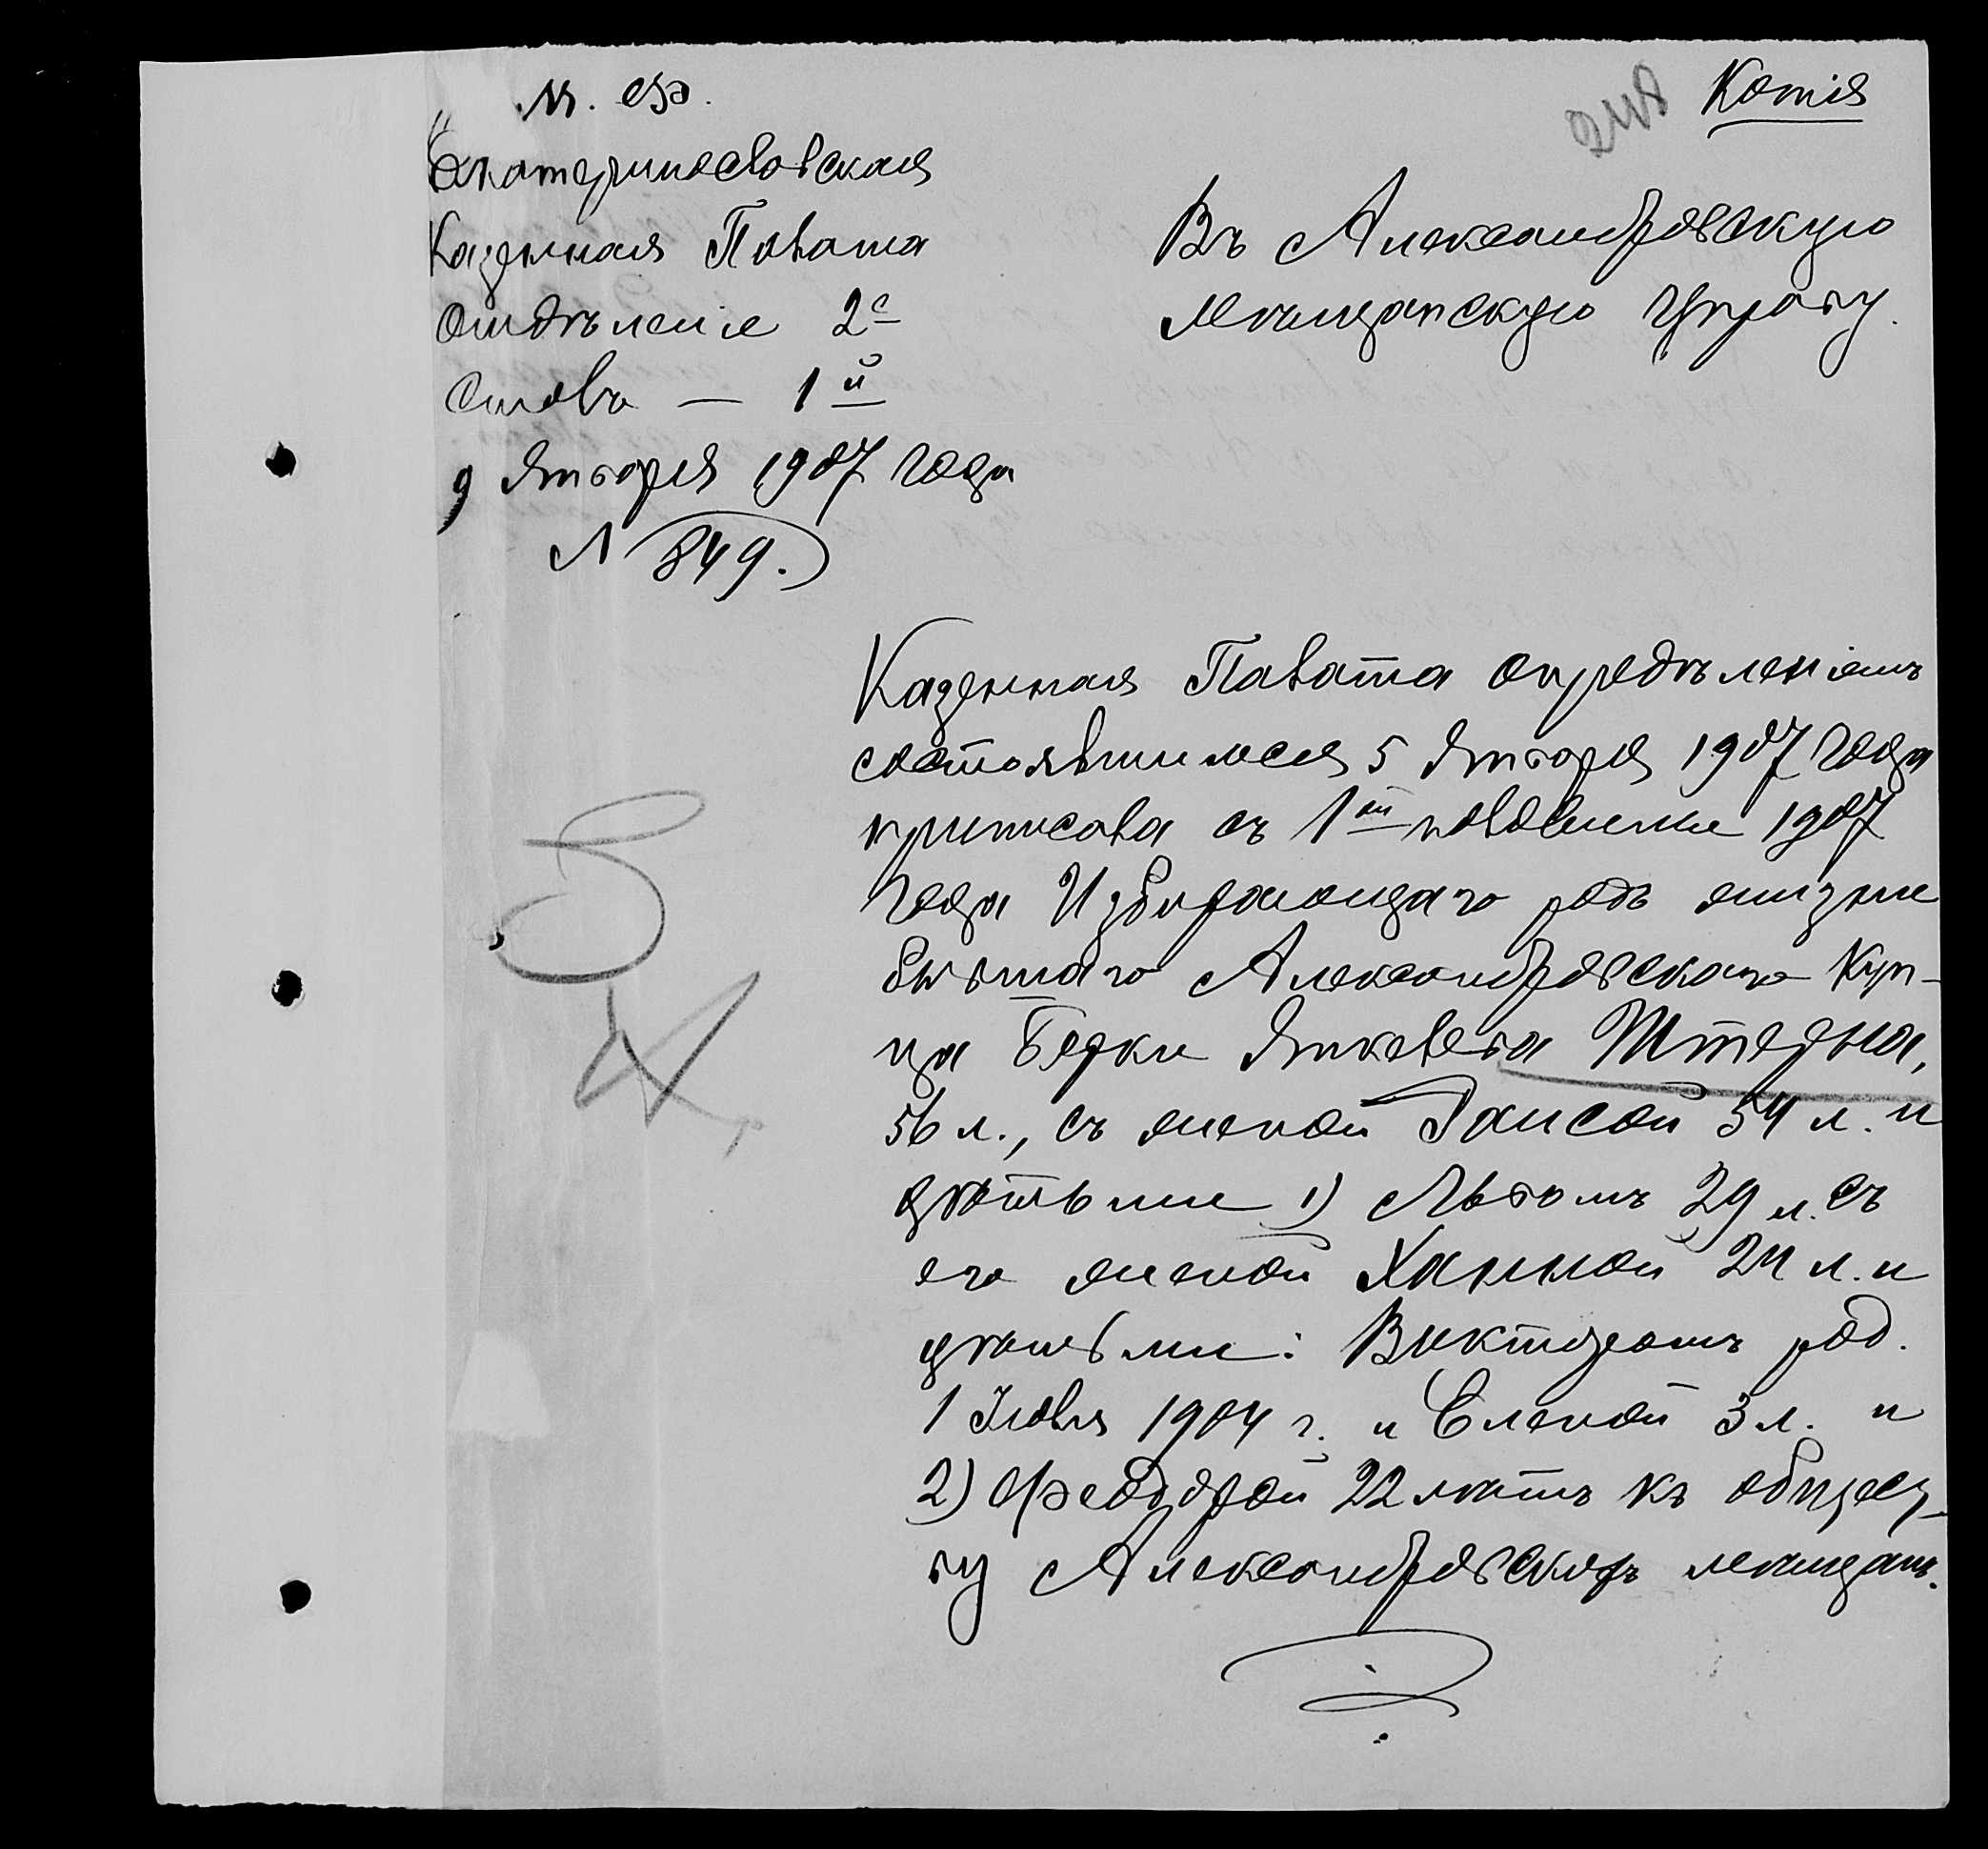 М. Ф.
Копія
Екатеринославская
Казенная Палата
Отдѣленіе 2е
Столъ — 1й
9 Января 1907 года
№ 849.
Въ Александровскую
мѣщанскую Управу.
Казенная Палата опредѣленіемъ
состоявшимся 5 Января 1907 года
приписала съ 1ой половины 1907
года Избирающаго родъ жизни
бывшаго Александровскаго Куп-
ца Берки Янкелева Штерна,
56 л., съ женой Раисой 54 л. и
дѣтьми 1) Львомъ 29 л. съ
его женой Ханной 24 л. и
дѣтьми: Викторомъ род.
1 Іюля 1904 г. и Еленой 3 л. и
2) Феодорой 22 лѣтъ къ общест-
ву Александровскихъ мѣщанъ.